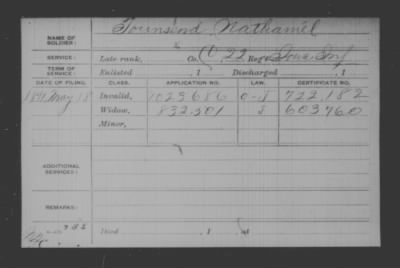 NAME OF SOLDIER: Townsend Nathaniel
SERVICE: Late rank, Co. C 22 Reg't Iowa Inf
TERM OF SERVICE: Enlisted , 1 Discharged , 1
DATE OF FILING. CLASS. APPLICATION NO. LAW. CERTIFICATE NO.
1891 May 18 Invalid, 1023686 722182
Widow, 832.301 8 603760
Minor,
ADDITIONAL SERVICES:
REMARKS:
Died , 1 , at